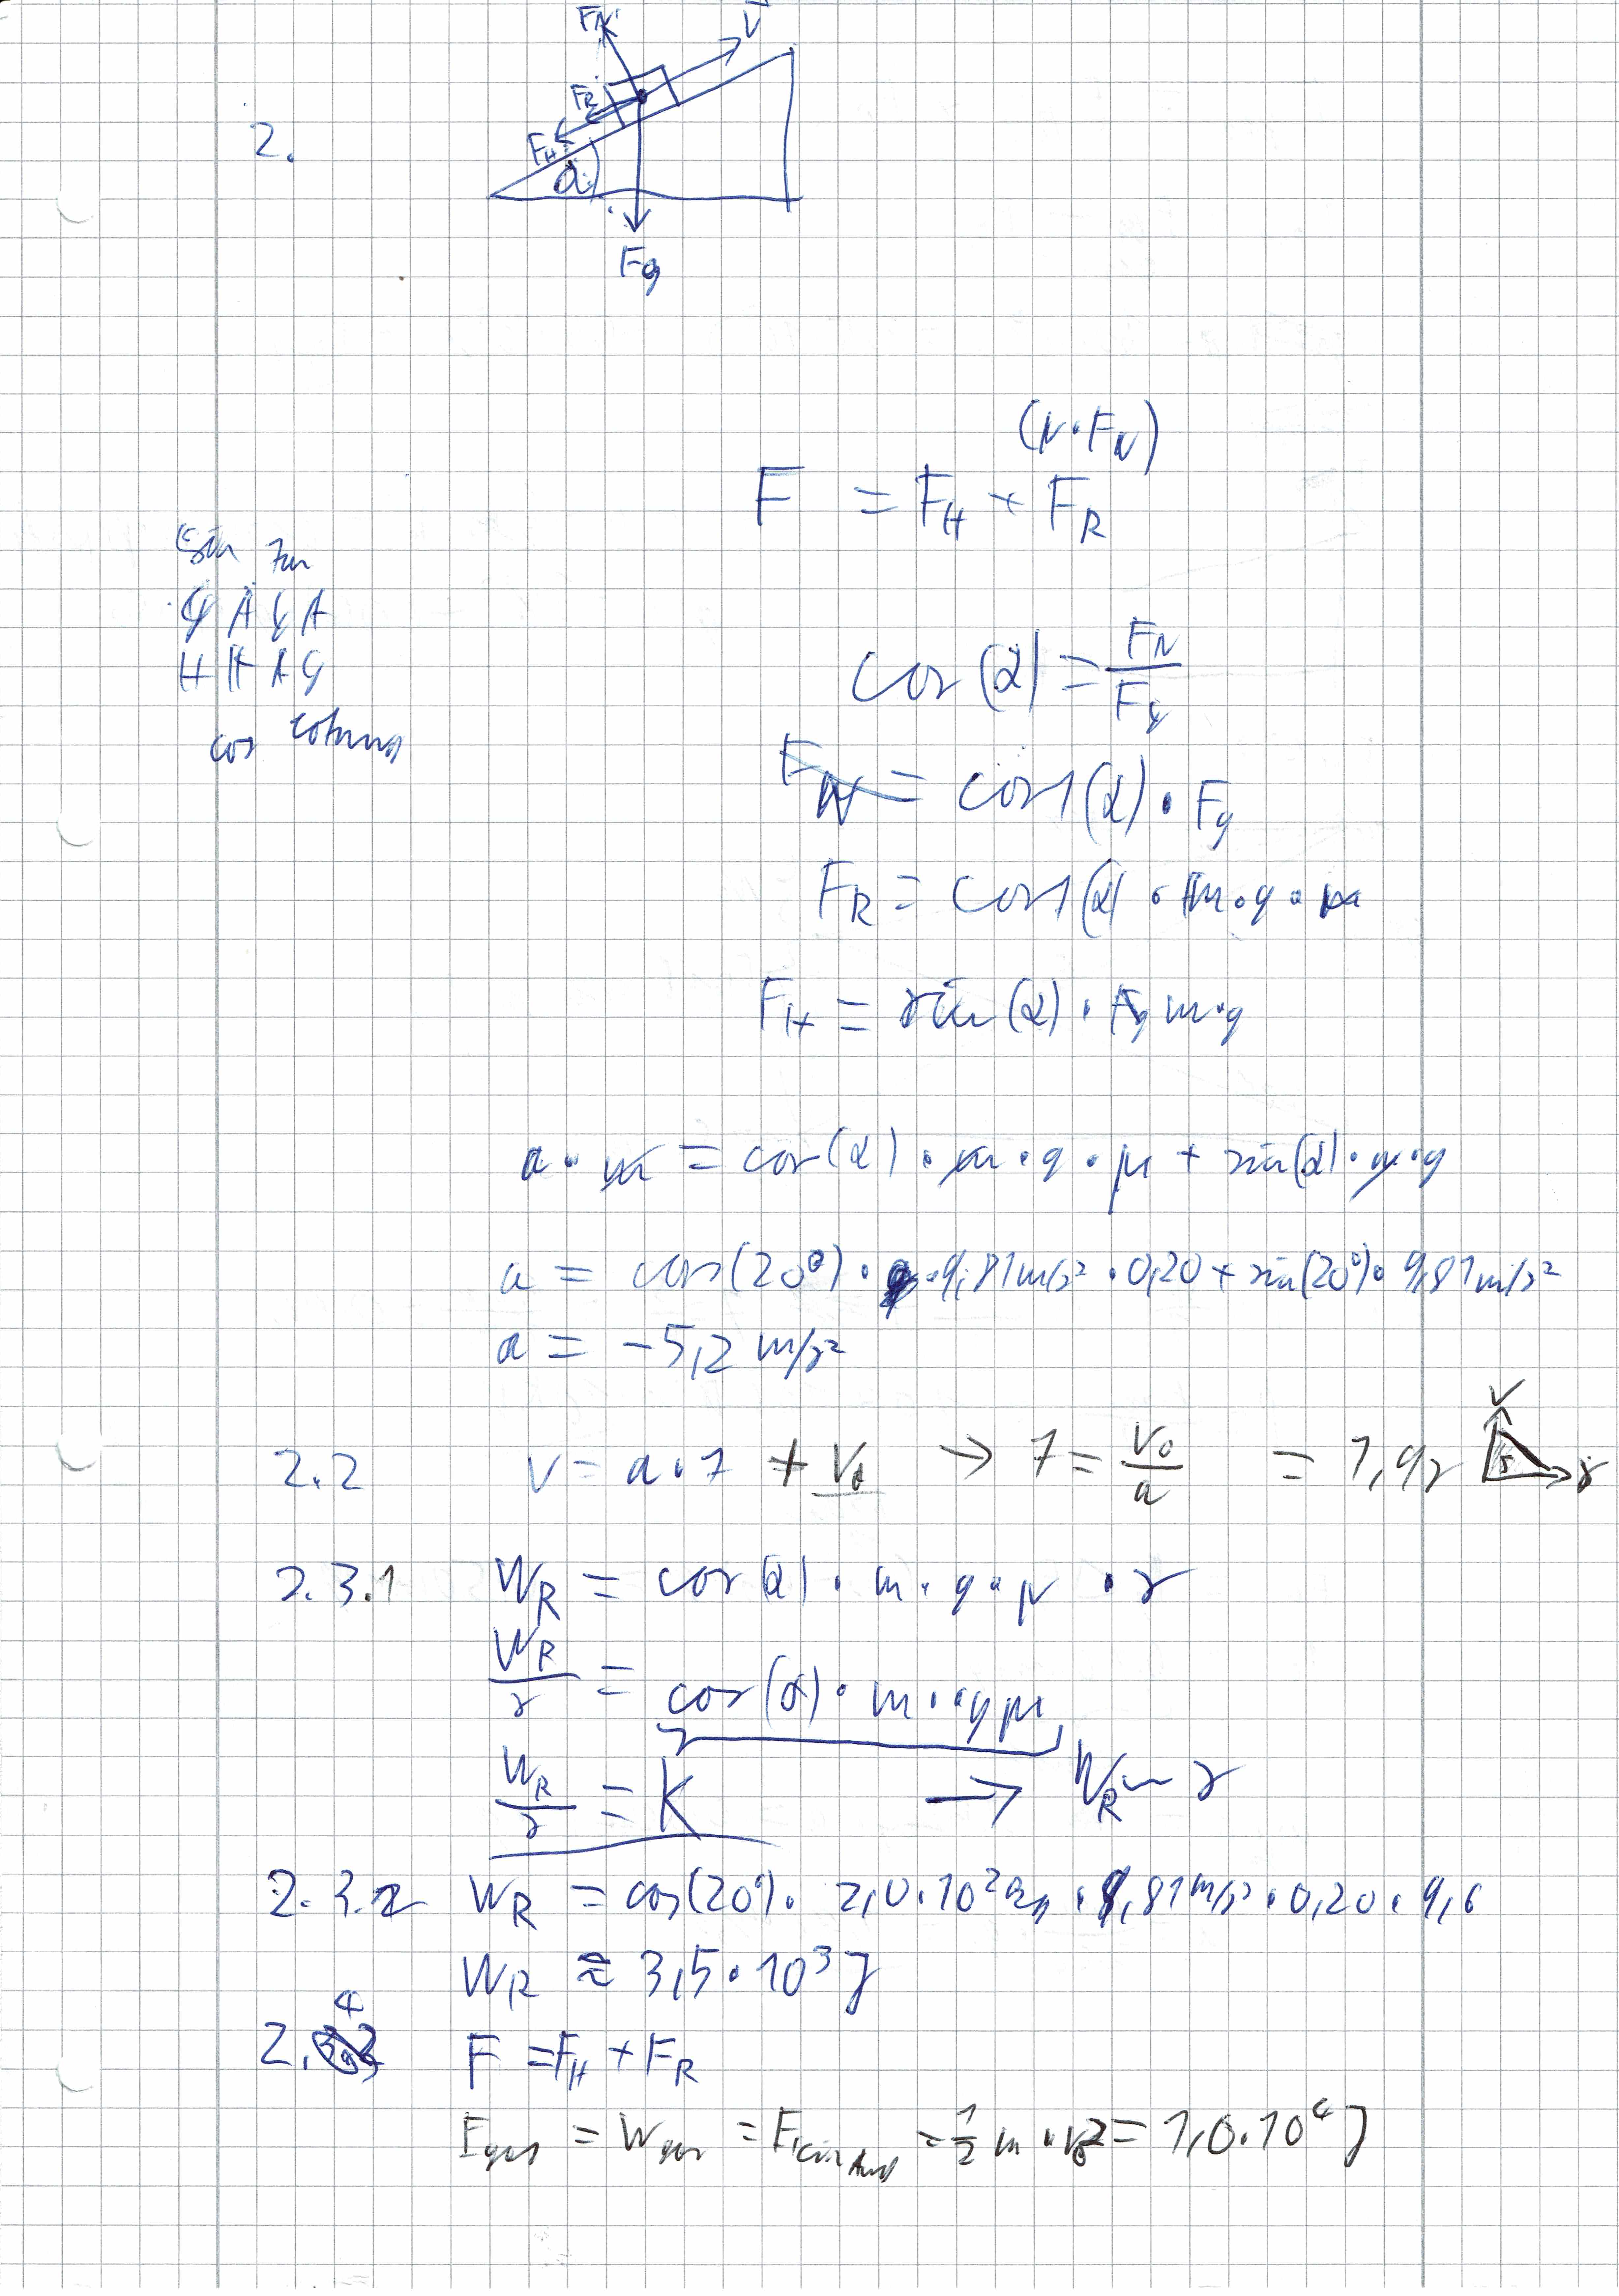 F_N
v
F_R
2.
F_H
α
F_g
(μ·F_N)
F = F_H + F_R
Sin Tan
G A G A
H H A G
cos Cotangs
cos(α) = F_N/F_g
F_N = cos(α) · F_g
F_R = cos(α) · m·g·μ
F_H = sin(α) · m·g
a·m = cos(α)·m·g·μ + sin(α)·m·g
a = cos(20°)·9,81m/s²·0,20 + sin(20°)·9,81m/s²
a = -5,2 m/s²
2.2 v = a·t + v₀ → t = v₀/a = 1,9s
v
s
s
2.3.1 W_R = cos(α)·m·g·μ·s
W_R/s = cos(α)·m··gμ
W_R/s = K → W_R ~ s
2.3.2 W_R = cos(20°)·2,0·10²kg·9,81m/s²·0,20·9,6
W_R ≈ 3,5·10³J
2.4 F = F_H + F_R
E_ges = W_ges = E_kin Anf = ½ m·v₀² = 1,0·10⁴ J